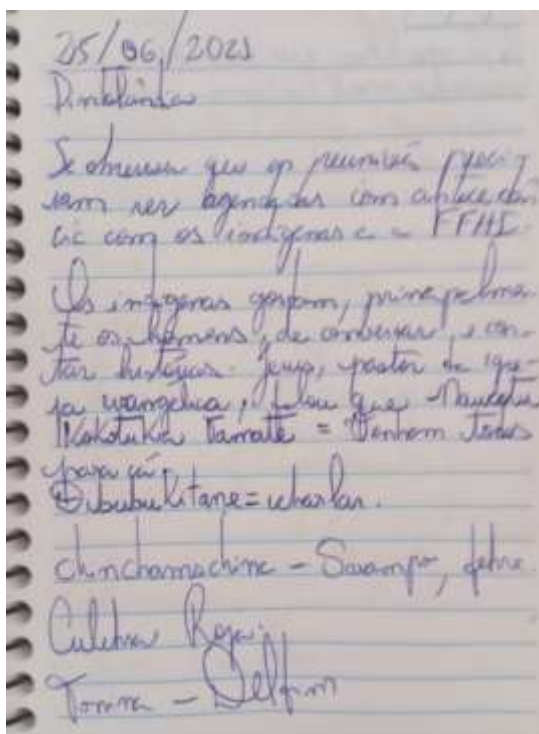 25/06/2021
Pintolândia
Se observou que as reuniões preci-
sam ser agendadas com antecedên-
cia com os indígenas e a FFHI.
Os indígenas gostam, principalmen-
te os homens, de conversar, e con-
tar histórias. pastor da igre-
ja evangelica, falou que
Kokotuka Tamate = Venham todos
para cá.
Dibubukitane = charlar.
chinchamochina - Sarampo, febre
Culebra Roja.
- Delfim